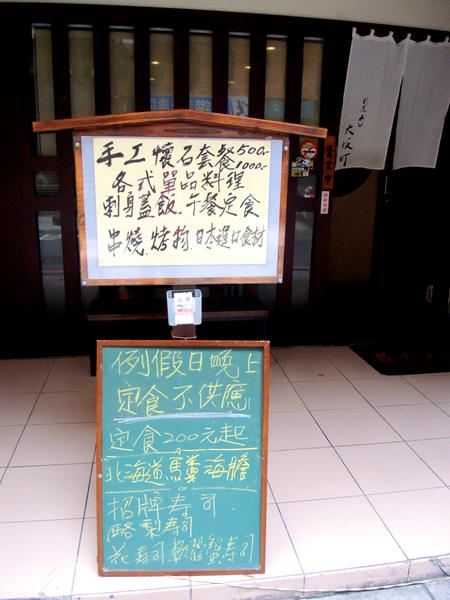 大阪町
手工懷石套餐500.-
1000.-
各式單品料理
刺身蓋飯.午餐定食
串燒.烤物.日本進口食材
例假日晚上
定食不供應
定食200元起
北海道馬糞海膽
招牌寿司
酪梨寿司
花寿司 軟殼蟹寿司